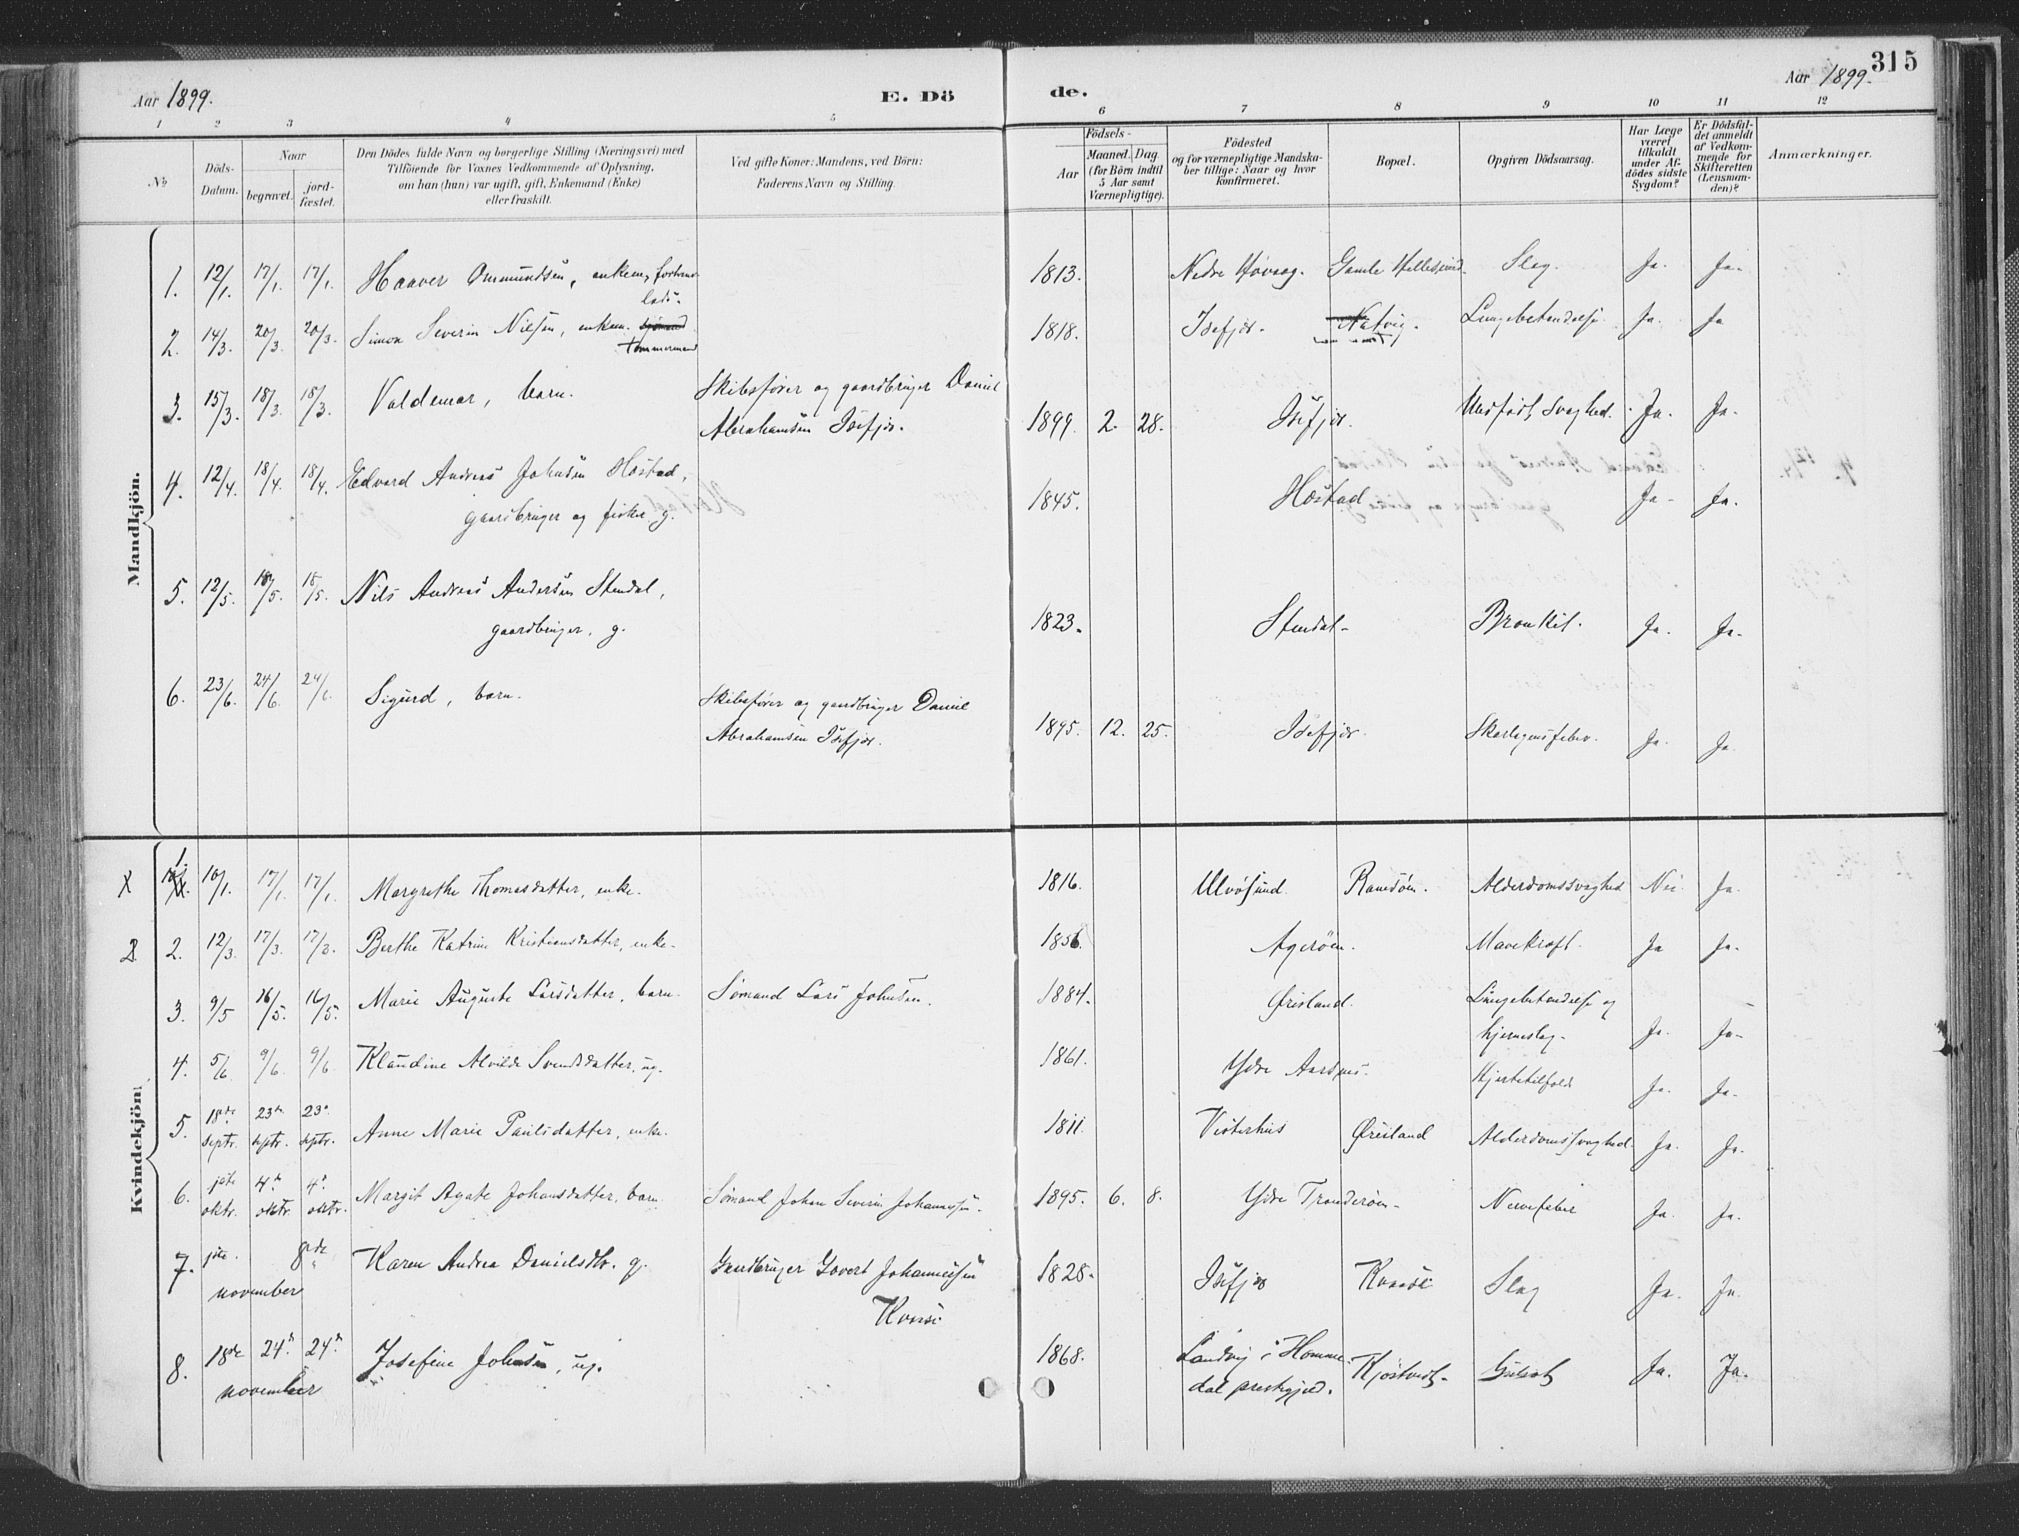 Aar 1899.
E. Dö
de.
Aar 1899.
315
1 2 3 4 5 6 7 8 9 10 11 12
No
Döds-
Datum.
Naar
begravet.
jord-
fæstet.
Den Dödes fulde Navn og borgerlige Stilling (Næringsvei) med
Tilföiende for Voxnes Vedkommende af Oplysning,
om han (hun) var ugift, gift, Enkemand (Enke)
eller fraskilt.
Ved gifte Koner: Mandens, ved Börn:
Faderens Navn og Stilling.
Födsels-
Aar
Maaned. Dag.
(for Börn indtil
5 Aar samt
Værnepligtige).
Födested
og for værnepligtige Mandska-
ber tillige: Naar og hvor
konfirmeret.
Bopæl.
Opgiven Dödsaarsag.
Har Læge
været
tilkaldt
under Af-
dödes sidste
Sygdom?
Er Dödsfal-
det anmeldt
af Vedkom-
mende for
Skifteretten
(Lensman-
den)?
Anmærkninger.
Mandkjön.
1. 12/1. 17/1. 17/1. Haaver Ommundsen, enkem, 1813. Nedre Høvaag. Gamle Hellesund. Slag. Ja. Ja.
lods.
2. 14/3. 20/3. 20/3. Simon Severin Nilsen, enkem. sjömand 1818. Isefjær. Natvig. Lungebetændelse. Ja. Ja
tömmermand
3. 15/3. 18/3. 18/3. Valdemar, barn. Skibsfører og gaardbruger Daniel
Abrahamsen Isefjær. 1899. 2. 28. Isefjær. Svaghed. Ja. Ja.
4. 12/4. 18/4. 18/4. Edvard Andreas Johnsen Høstad, 1845. Høstad Ja. Ja.
gaardbruger og fisker g.
5. 12/5. 18/5. 18/5. Nils Andreas Andersen Stendal, 1823. Stendal. Bronkit. Ja. Ja.
gaardbruger, g.
6. 23/6. 24/6. 24/6. Sigurd, barn. Skibsfører og gaardbruger Daniel
Abrahamsen Isefjær. 1895. 12. 25. Isefjær. Skarlagensfeber. Ja. Ja.
Kvindekjön.
X 1. 10/1. 17/1. 17/1. Margrethe Thomasdatter, enke. 1816. Ulvøsund. Ramsöen. Alderdomssvaghed Nei Ja.
2. 12/3. 17/3. 17/3. Berthe Katrine Kristiansdatter, enke. 1856. Agerøen. Mavekræft. Ja Ja.
3. 9/5 16/5. 16/5. Marie Auguste Larsdatter, barn. Sømand Lars Johnsen. 1884. Ørisland. Lungebetændelse og
hjerneslag. Ja. Ja.
4. 5/6 9/6. 9/6. Klaudine Alvilde Svendsdatter, ug. 1861. Ydre Aarsnes. Hjertetilfæld Ja. Ja.
5. 18de septr. 23de septr. 23de septr. Anne Marie Paulsdatter, enke. 1811. Vesterhus Ørisland Alderdomssvaghed. Ja. Ja.
6. 1ste oktr. 4de oktr. 4de oktr. Margit Agate Johansdatter, barn. Sømand Johan Severin Johannesen. 1895. 6. 8. Ydre Tronderøen. Nervefeber Ja. Ja.
7. 1ste 8de Karen Andrea Danielsdtr. g. Gaardbruger Govert Johannessen 1828. Isefjær Kvaase Slag Ja. Ja.
november Kvaase
8. 18de 24de 24de Josefine Johnsen, ug. 1868. Landvig i Homme- Kjøstvedt. Gulsot Ja. Ja.
november dal prestegjeld.